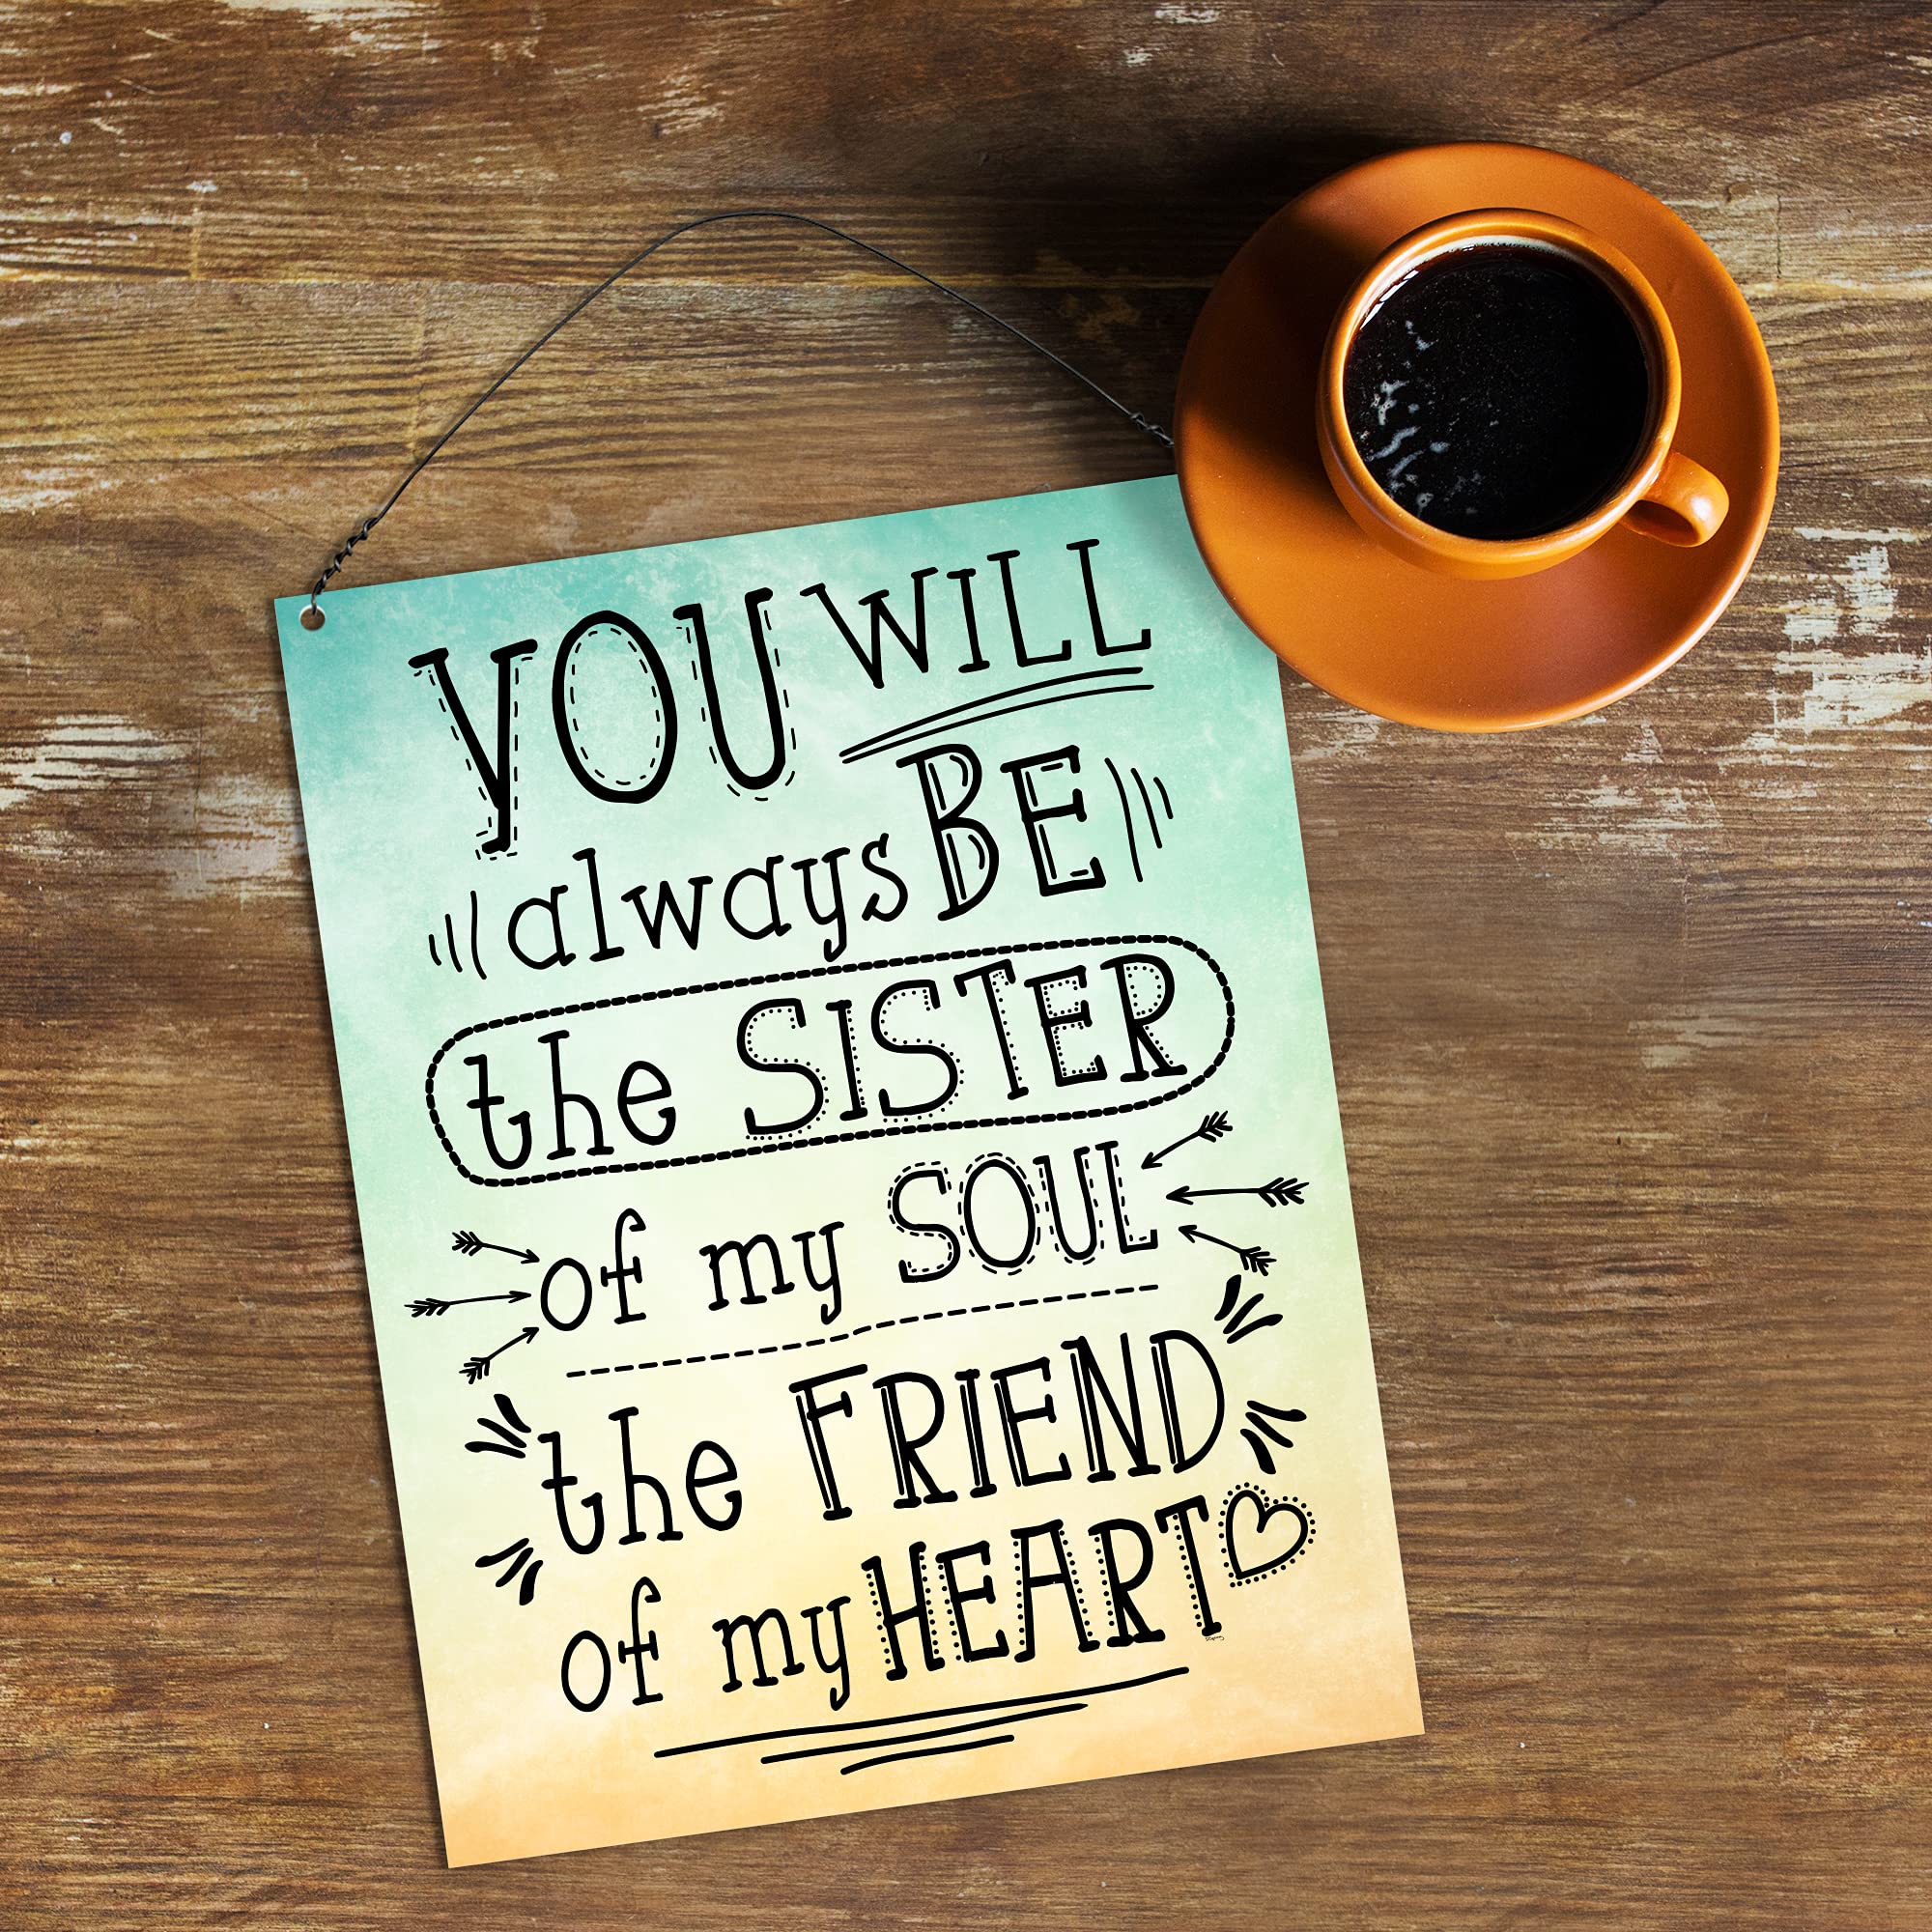 YOU WILL
always BE
the SISTER
of my SOUL
the FRIEND
of my HEART